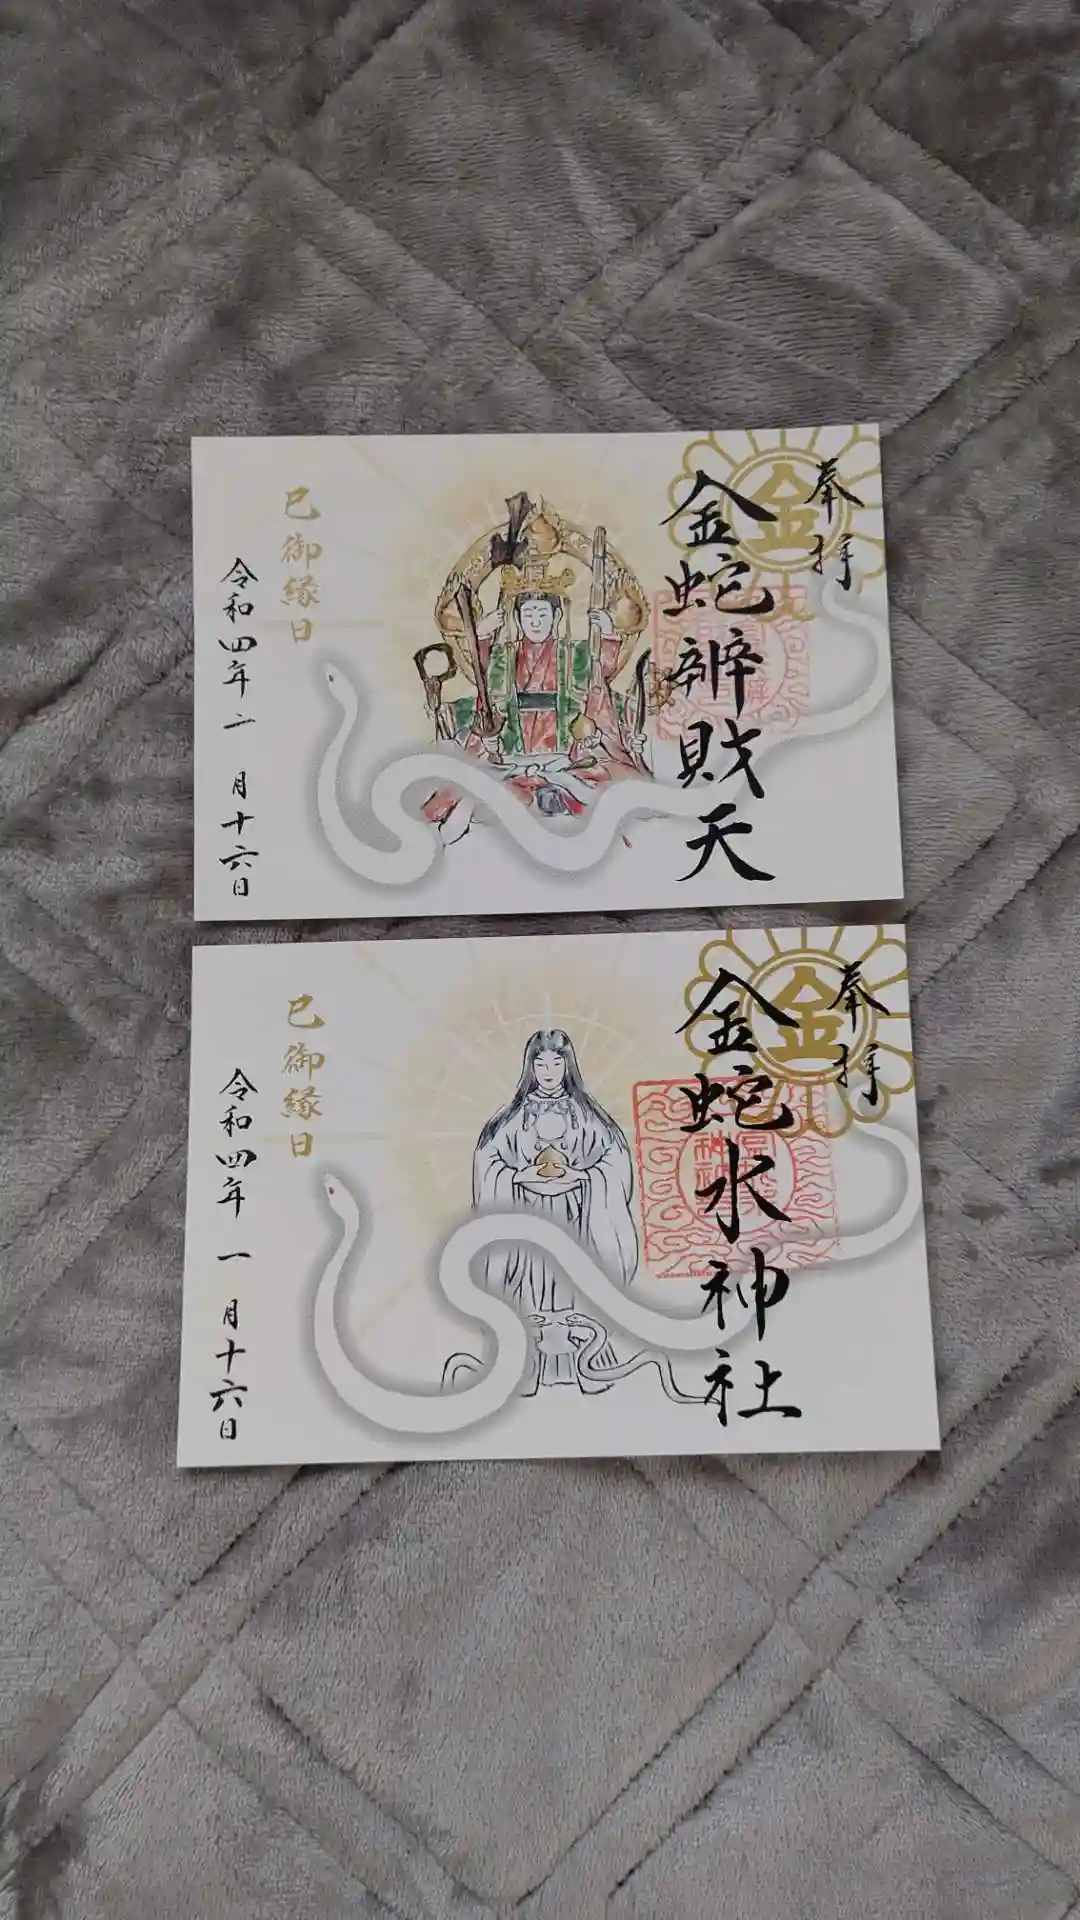 奉拝
金
金蛇辨財天
巳御縁日
令和四年一月十六日
奉拝
金
金蛇水神社
巳御縁日
令和四年一月十六日